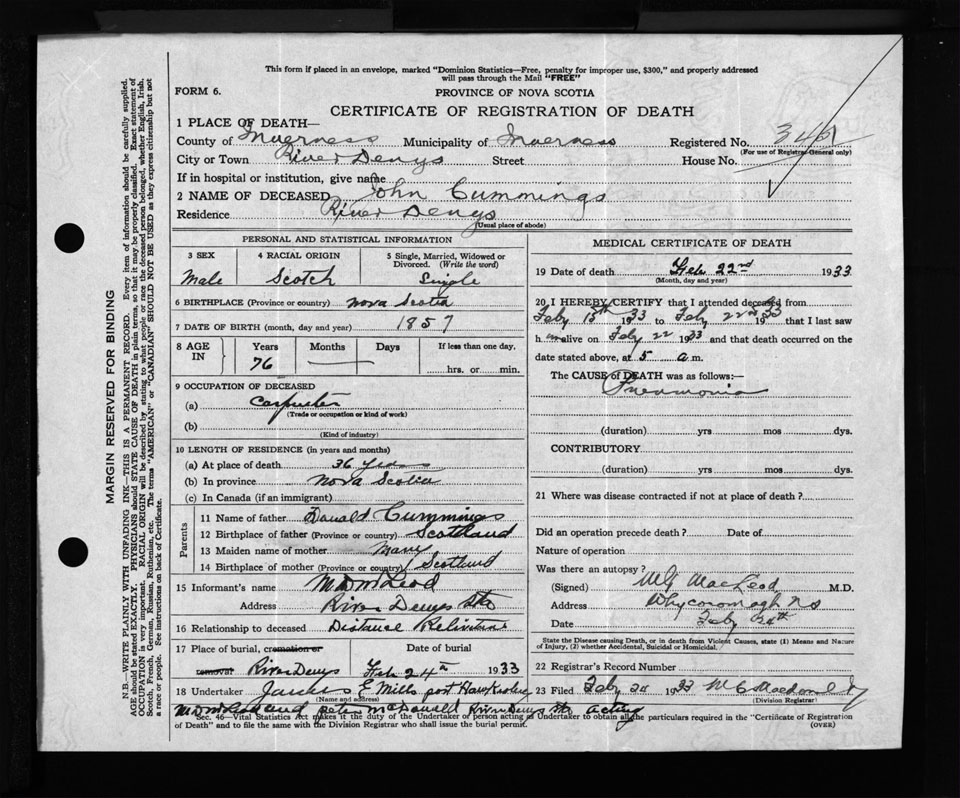 This form if placed in an envelope, marked "Dominion Statistics—Free, penalty for improper use, $300," and properly addressed
will pass through the Mail "FREE"
FORM 6.
PROVINCE OF NOVA SCOTIA
CERTIFICATE OF REGISTRATION OF DEATH
1 PLACE OF DEATH—
County of Inverness Municipality of Inverness Registered No.
(For use of Registrar General only)
City or Town River Denys Street House No.
If in hospital or institution, give name
2 NAME OF DECEASED John Cummings
Residence River Denys
(Usual place of abode)
PERSONAL AND STATISTICAL INFORMATION
3 SEX 4 RACIAL ORIGIN 5 Single, Married, Widowed or
Divorced. (Write the word)
Male Scotch Single
6 BIRTHPLACE (Province or country) Nova Scotia
7 DATE OF BIRTH (month, day and year) 1857
8 AGE IN Years Months Days If less than one day.
76 hrs. or min.
9 OCCUPATION OF DECEASED
(a) Carpenter
(Trade or occupation or kind of work)
(b)
(Kind of industry)
10 LENGTH OF RESIDENCE (in years and months)
(a) At place of death 36 years
(b) In province Nova Scotia
(c) In Canada (if an immigrant)
Parents
11 Name of father Donald Cummings
12 Birthplace of father (Province or country) Scotland
13 Maiden name of mother Mary
14 Birthplace of mother (Province or country) Scotland
15 Informant's name M D McLeod
Address River Denys Sta
16 Relationship to deceased Distance Relivtive
17 Place of burial, cremation or Date of burial
removal River Denys Feb 24th 1933
18 Undertaker E Mills
(Name and address)
Peter McDonald River Denys Sta acting
MEDICAL CERTIFICATE OF DEATH
19 Date of death Feb 22nd 1933
(Month, day and year)
20 I HEREBY CERTIFY that I attended deceased from
Feby 15th 1933 to Feby 22nd 1933 that I last saw
h im alive on Feby 22 1933 and that death occurred on the
date stated above, at 5 a.m.
The CAUSE of DEATH was as follows:—
Pneumonia
(duration) yrs mos dys.
CONTRIBUTORY
(duration) yrs mos dys.
21 Where was disease contracted if not at place of death?
Did an operation precede death? Date of
Nature of operation
Was there an autopsy?
(Signed) MacLeod M.D.
Address Whycocomagh NS
Date Feby 24th
State the Disease causing Death, or in death from Violent Causes, state (1) Means and Nature
of Injury, (2) whether Accidental, Suicidal or Homicidal.
22 Registrar's Record Number
23 Filed Feby 1933
(Division Registrar)
Sec. 46—Vital Statistics Act makes it the duty of the Undertaker or person acting as Undertaker to obtain all the particulars required in the "Certificate of Registration
of Death" and to file the same with the Division Registrar who shall issue the burial permit.
(OVER)
MARGIN RESERVED FOR BINDING
N.B.—WRITE PLAINLY WITH UNFADING INK—THIS IS A PERMANENT RECORD. Every item of information should be carefully supplied.
AGE should be stated EXACTLY. PHYSICIANS should STATE CAUSE OF DEATH in plain terms, so that it may be properly classified. Exact statement of
OCCUPATION is very important. RACIAL ORIGIN will be described by stating to what people or race the deceased person belonged, whether English, Irish,
Scotch, French, German, Russian, Ruthenian, etc. The terms "AMERICAN" or "CANADIAN" SHOULD NOT BE USED as they express citizenship but not
a race or people. See instructions on back of Certificate.